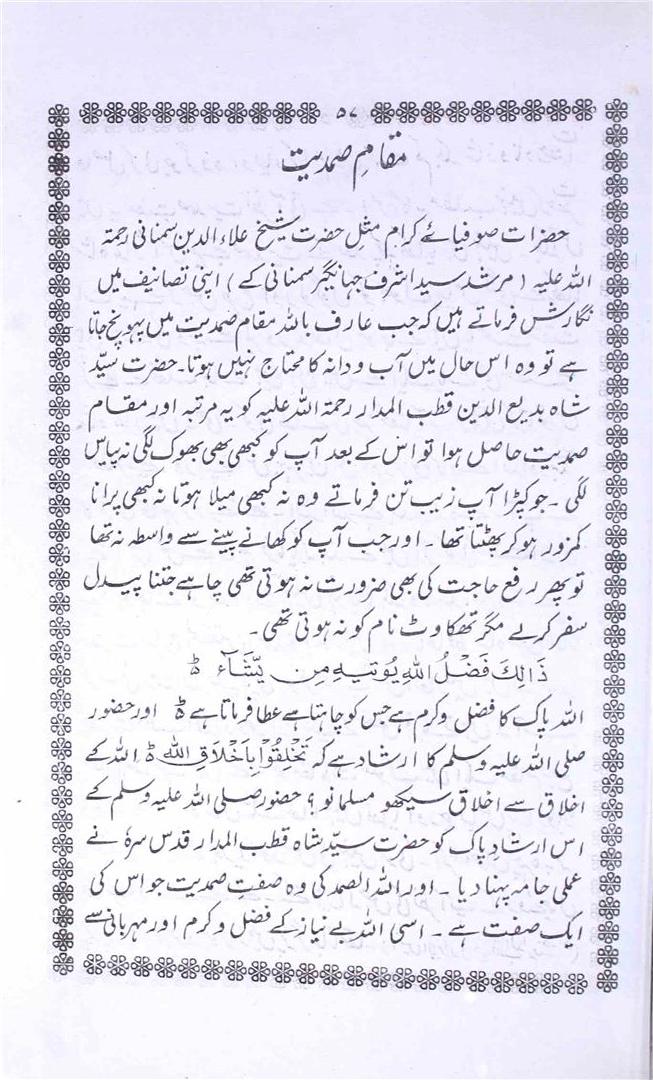 ۵۷
مقامِ صمدیت
حضرات صوفیائے کرام مثل حضرت شیخ علاء الدین سمنانی رحمۃ
اللہ علیہ (مرشد سید اشرف جہانگیر سمنانی کے) اپنی تصانیف میں
نگارش فرماتے ہیں کہ جب عارف باللہ مقام صمدیت میں پہونچ جاتا
ہے تو وہ اس حال میں آب و دانہ کا محتاج نہیں ہوتا۔ حضرت سیّد
شاہ بدیع الدین قطب المدار رحمۃ اللہ علیہ کو یہ مرتبہ اور مقام
صمدیت حاصل ہوا تو اس کے بعد آپ کو کبھی بھی بھوک لگی نہ پیاس
لگی ۔ جو کپڑا آپ زیب تن فرماتے وہ نہ کبھی میلا ہوتا نہ کبھی پرانا
کمزور ہو کر پھٹتا تھا ۔ اور جب آپ کو کھانے پینے سے واسطہ نہ تھا
تو پھر رفع حاجت کی بھی ضرورت نہ ہوتی تھی چاہے جتنا پیدل
سفر کرلے مگر تھکاوٹ نام کو نہ ہوتی تھی ۔
ذَالِكَ فَضْلُ اللهِ يُوتِيهِ مِن يَّشَآء ط
اللہ پاک کا فضل و کرم ہے جس کو چاہتا ہے عطا فرماتا ہے ط اور حضور
صلی اللہ علیہ وسلم کا ارشاد ہے کہ تَخَلِّقُوْا بِاَخْلَاقِ اللّٰه ط اللہ کے
اخلاق سے اخلاق سیکھو مسلمانو ؟ حضور صلی اللہ علیہ وسلم کے
اس ارشادِ پاک کو حضرت سیّد شاہ قطب المدار قدس سرہٗ نے
عملی جامہ پہنا دیا ۔ اور اللہ الصمد کی وہ صفتِ صمدیت جو اس کی
ایک صفت ہے ۔ اسی اللہ بے نیاز کے فضل و کرم اور مہربانی سے